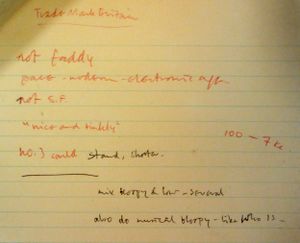 Trade Mark Britain
not faddy
pace - modern - electronic age
not S.F.
"nice and tinkly"
100 - 7 Kc
no. 3 could stand, shorter
mix bloopy & low - several
also do musical bloopy - like Who is